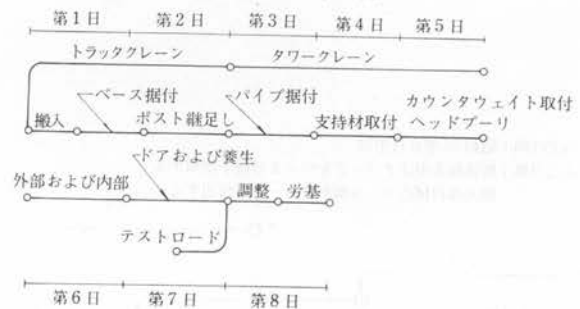 第1日 第2日 第3日 第4日 第5日
トラッククレーン タワークレーン
ベース据付 パイプ据付 カウンタウェイト取付
搬入 ポスト継足し 支持材取付 ヘッドプーリ
ドアおよび養生
外部および内部 調整 労基
テストロード
第6日 第7日 第8日